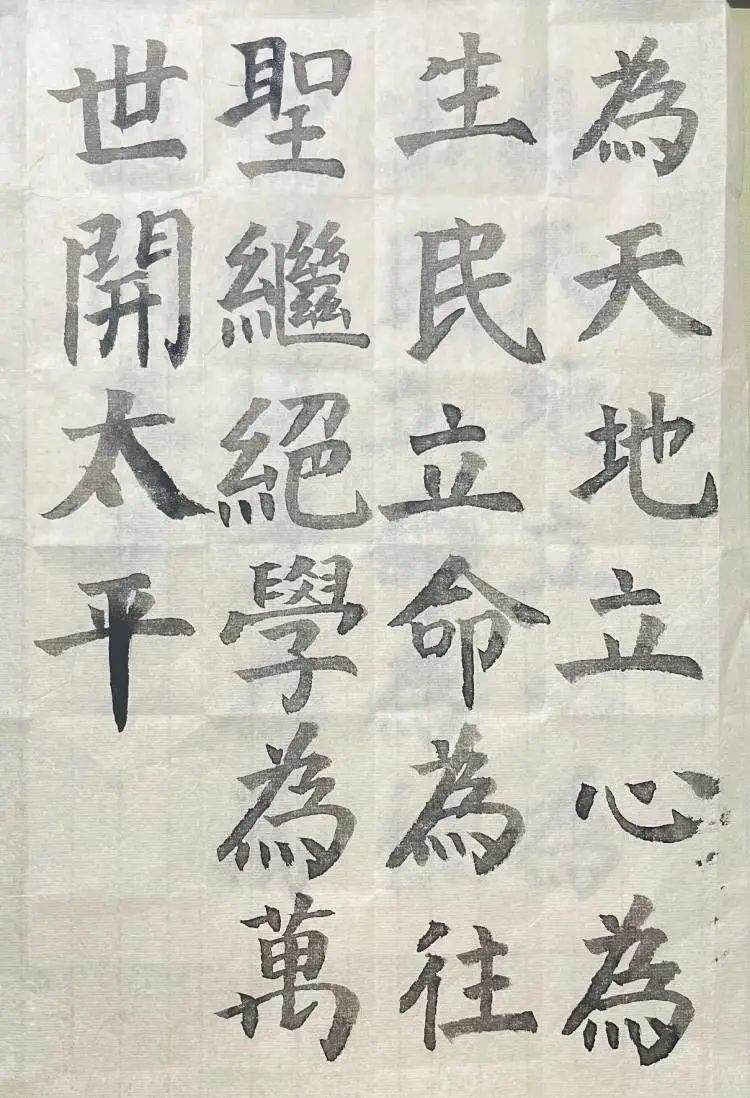 為天地立心為
生民立命為往
聖繼絕學為萬
世開太平